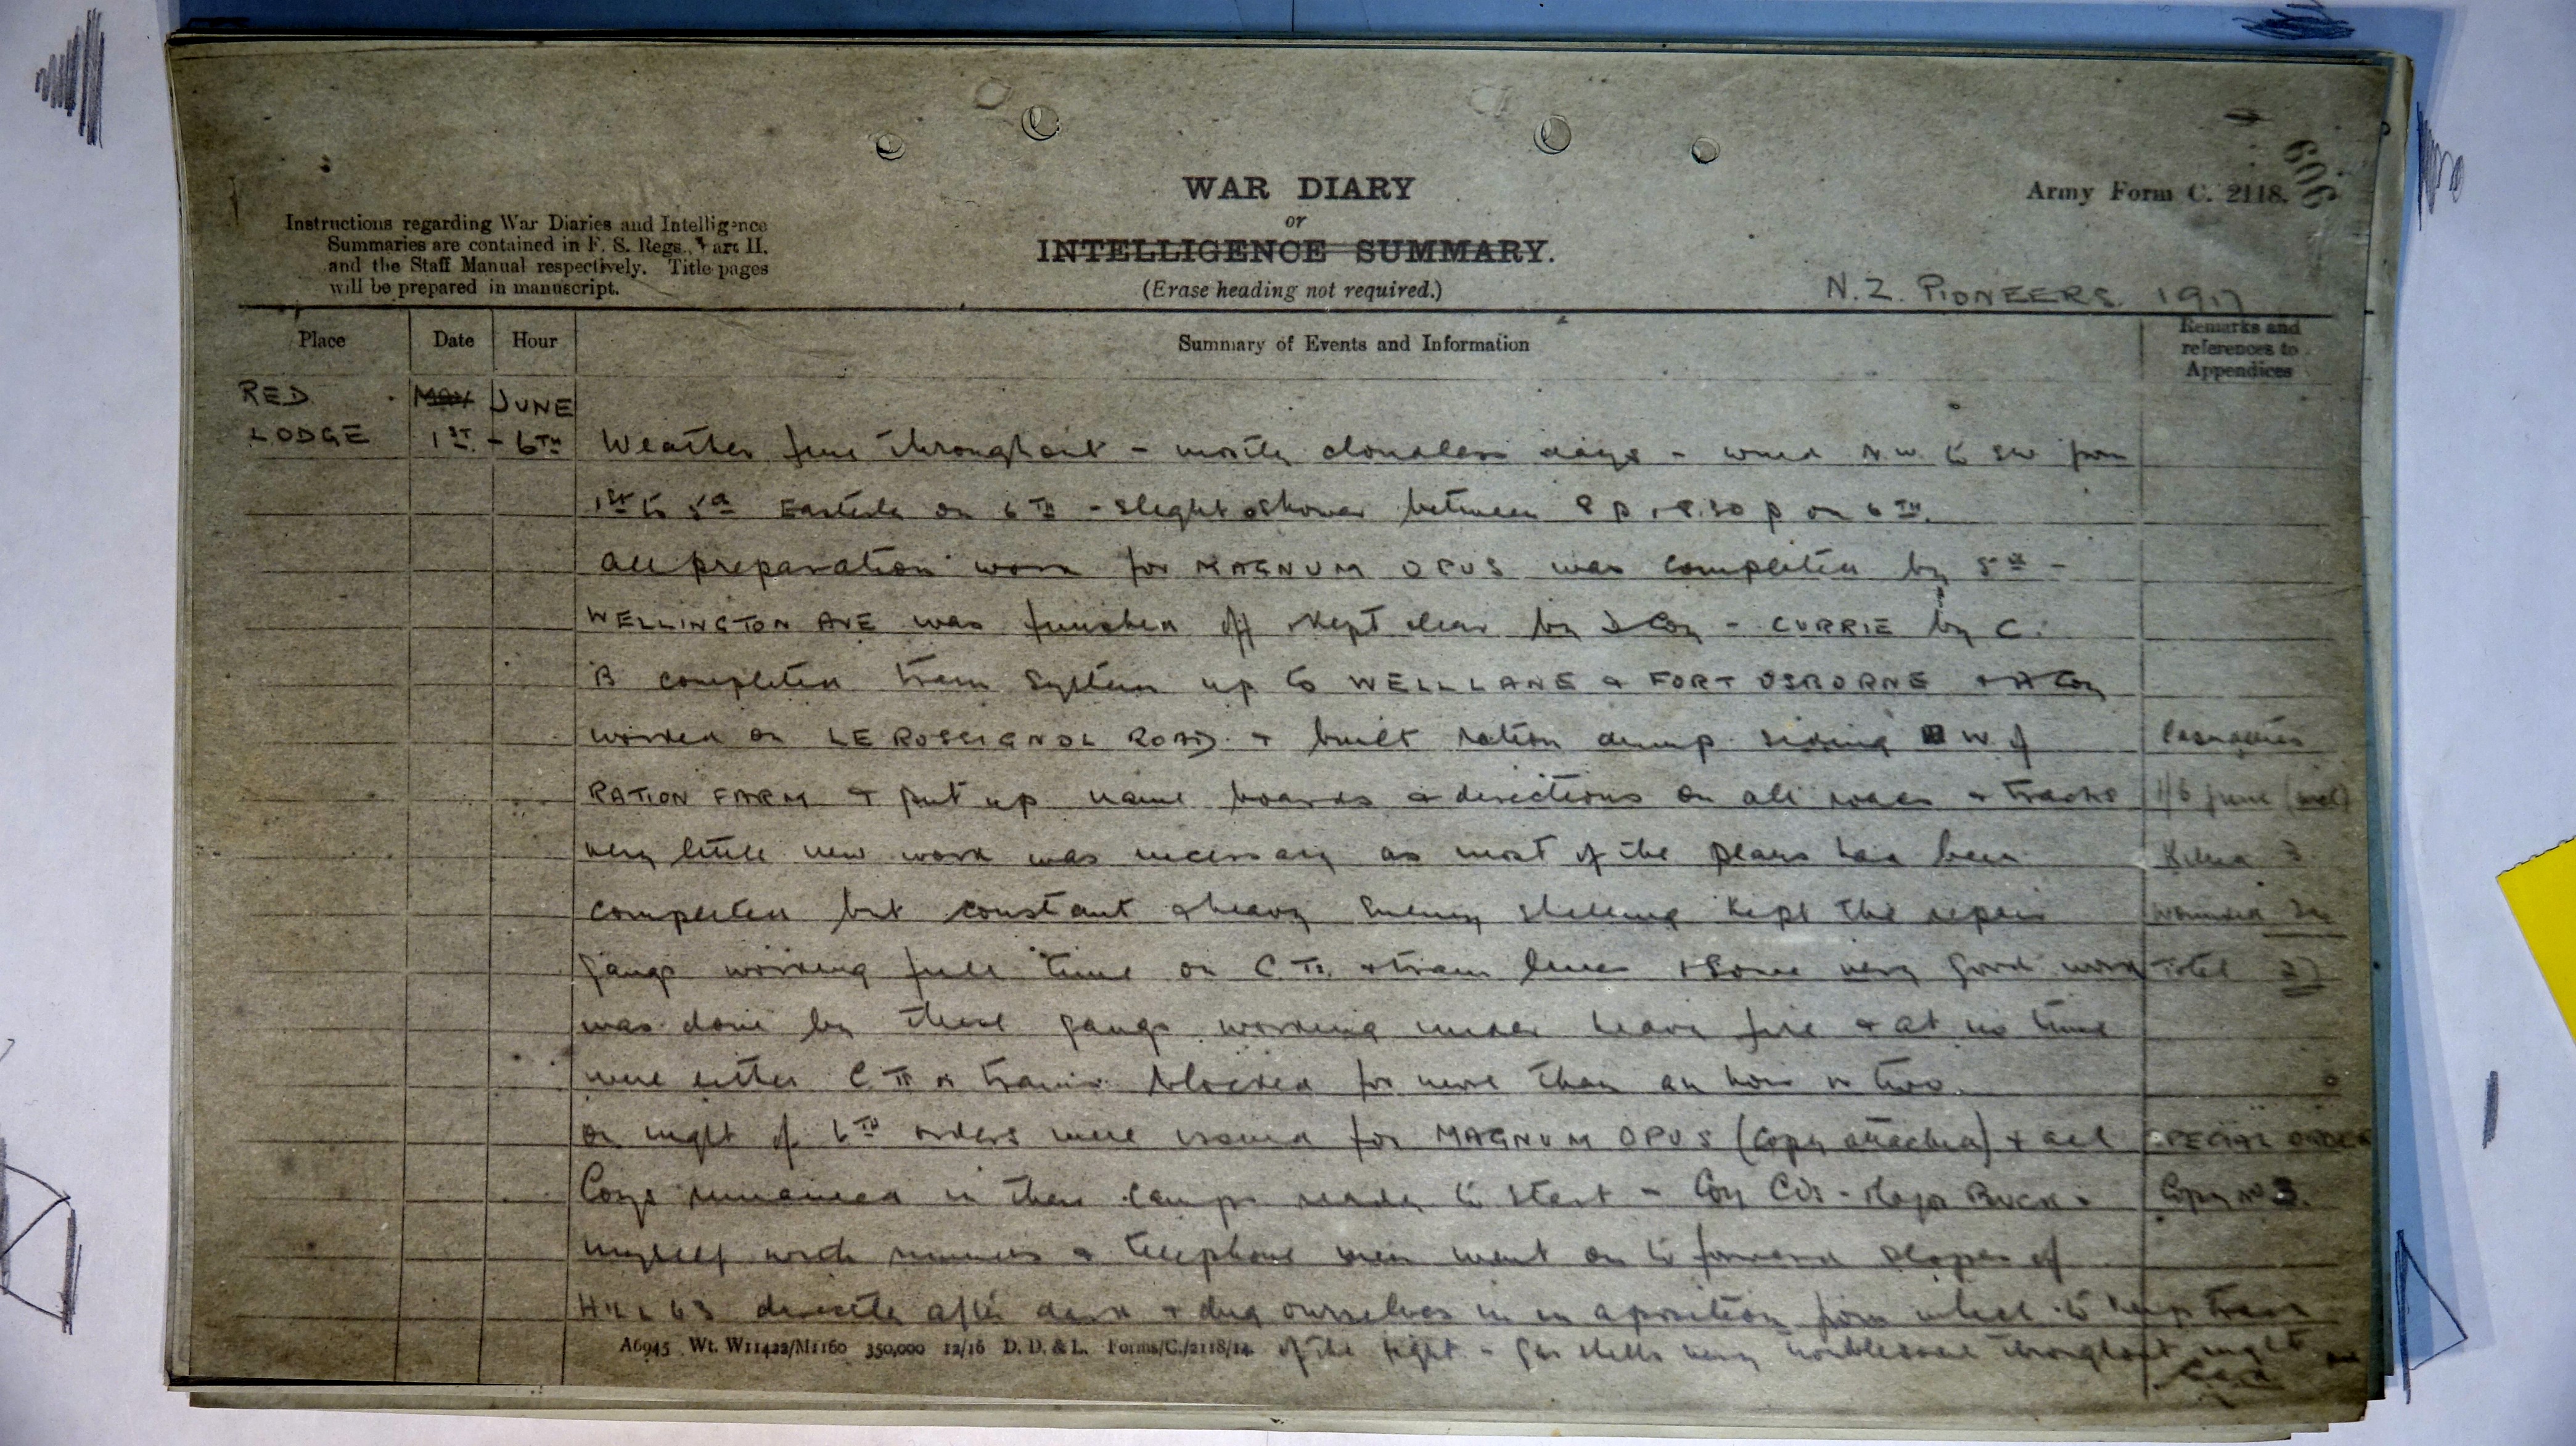 WAR DIARY
or
INTELLIGENCE SUMMARY.
(Erase heading not required.)
Army Form C. 2118.
606
Instructions regarding War Diaries and Intelligence
Summaries are contained in F. S. Regs., Part II.
and the Staff Manual respectively. Title pages
will be prepared in manuscript.
N.Z. PIONEERS. 1917
Place Date Hour Summary of Events and Information Remarks and references to Appendices
RED MAY JUNE
LODGE 1ST - 6TH Weather fine throughout - mostly cloudless days - wind N.W. to SW from
1st to 5th Easterly on 6TH - slight shower between 8 p & 8.30 p on 6TH.
All preparation work for MAGNUM OPUS was completed by 5th -
WELLINGTON AVE was finished off & kept clear by D Coy - CURRIE by C.
B completed tram system up to WELL LANE & FORT OSBORNE & A Coy
worked on LE ROSSIGNOL ROAD & built ration dump siding W of Casualties
RATION FARM & put up name boards & directions on all roads & tracks 1/6 June (incl)
very little new work was necessary as most of the plans had been Killed 3
completed but constant & heavy enemy shelling kept the repair Wounded
gangs working full time on C Ts & tram lines & some very good work Total
was done by these gangs working under heavy fire & at no time
were either C Ts or trams blocked for more than an hour or two.
On night of 6TH orders were issued for MAGNUM OPUS (Copy attached) & all SPECIAL ORDER
Coys remained in their camps ready to start - Coy C/Os - Major BUCK & Copy No 3.
myself with runners & telephone men went on to forward slopes of
HILL 63 directly after dark & dug ourselves in in a position from which to keep track
of the fight - Gas shells very troublesome throughout night
A6945 Wt. W11422/M1160 350,000 12/16 D. D. & L. Forms/C./2118/14.